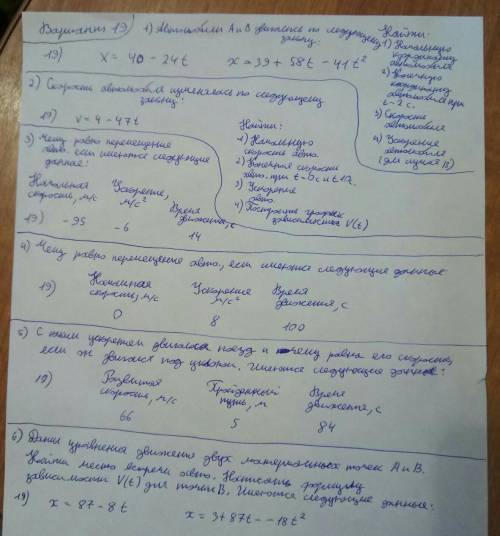 Вариант 19
1) Автомобили A и B двигались по следующему закону:
19) x = 40 - 24t     x = 39 + 58t - 41t²
Найти:
1) Начальную координату автомобиля
2) Конечную координату автомобиля при t - 2 с.
3) Скорость автомобиля
4) Ускорение автомобиля (для случая B)
2) Скорость автомобиля изменялась по следующему
закону:
19) v = 4 - 47t
Найти:
1) Начальную
скорость авто.
2) Конечная скорость
авто. при
3) Ускорение
авто.
4) Построить график
зависимости V(t)
3) Чему равно перемещение
авто. если имеются следующие
данные:
Начальная скорость, м/с   Ускорение, м/с²   Время движения, с
19) -95   -6   14
4) Чему равно перемещение авто., если имеются следующие данные
19) Начальная скорость, м/с   Ускорение м/с²   Время движения, с
0   8   100
5) С каким ускорением двигался поезд и чему равна его скорость,
если он двигался под Имеются следующие данные:
19) Развитая скорость, м/с   Пройденный путь, м   Время движения, с
66   5   84
6) Даны уравнения движения двух материальных точек A и B.
Найти место встречи авто. Написать формулу
зависимости V(t) для точки B. Имеются следующие данные:
19) x = 87 - 8t     x = 3 + 87t - -18t²